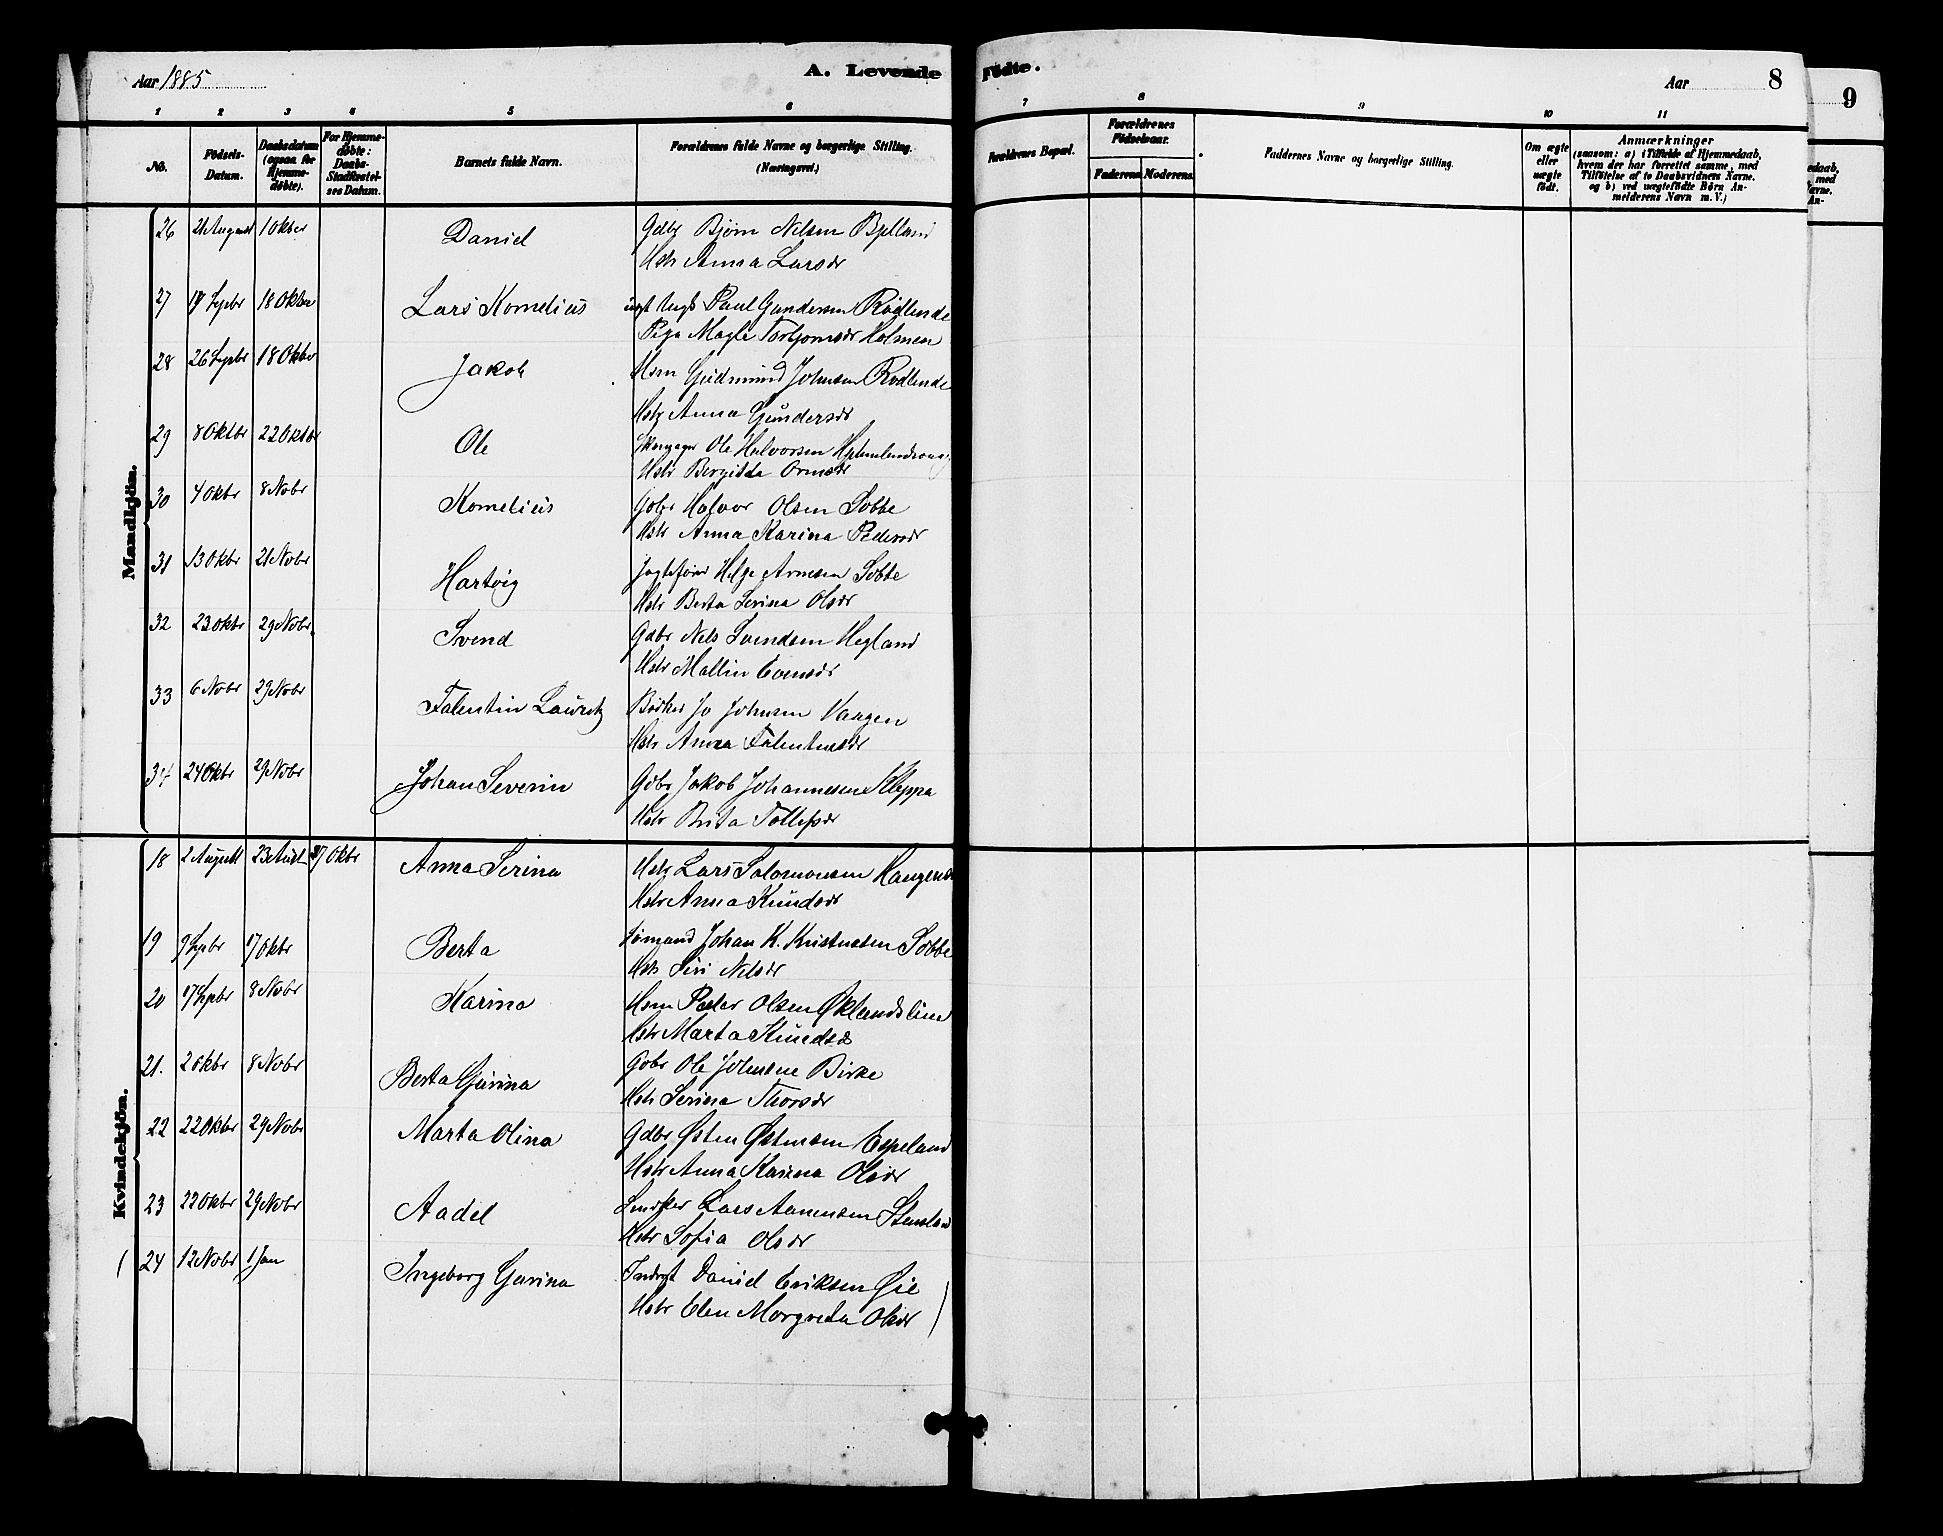 Aar 1885
A. Levende
Fødte.
Aar
8
9
1 2 3 4 5 6 7 8 9 10 11
No.
Fødsels-
Datum.
Daabsdatum
(ogsaa for
Hjemme-
døbte).
For Hjemme-
døbte:
Daabs-
Stadfæstel-
ses Datum.
Barnets fulde Navn.
Forældrenes fulde Navne og borgerlige Stilling.
(Næringsvei.)
Forældrenes Bopæl.
Forældrenes
Fødselsaar.
Faderens. Moderens.
Faddernes Navne og borgerlige Stilling.
Om ægte
eller
uægte
født.
Anmærkninger
(saasom: a) i Tilfælde af Hjemmedaab,
hvem der har forrettet samme, med
Tilføielse af to Daabsvidners Navne.
og b) ved uægtefødte Børn An-
melderens Navn m. V.)
Mandkjön.
26 21 August 1 Okber Daniel Gdbr Bjørn Nilsen Bjelland
Hstr Anna Larsdr
27 Sepbr 18 Oktbr Lars Kornelius ungk Paul Gundersen Rødlende
Pige Magle Torbjornsdr Holmen
28 26 Sepbr 18 Oktbr Jakob Hsm Gudmund Johnsen Rødlende
Hstr Anna Gundersdr
29 8 Oktbr 22 Oktbr Ole Ole Halvorsen
Hstr Bergitta Ormsdr
30 4 Okbr 8 Nobr Kornelius Gdbr Halvor Olsen Løbbe
Hstr Anna Karina Pedersdr
31 13 Okbr 21 Nobr Hartvig Jagtefører Helge Arnesen Løbbe
Hstr Berta Serina Olsdr
32 23 Okbr 29 Nobr Svend Gdbr Nils Svendsen Hegland
Hstr Mallin Evensdr
33 6 Nobr 29 Nobr Falentin Lauritz Bødker Jo Johnsen Vaagen
Hstr Anna Falentinsdr
34 24 Okbr 29 Nobr Johan Severin Gdbr Jakob Johannesen Kleppa
Hstr Brita Tollefsdr
Kvindekjön.
18 2 August 23 Aust 27 Okbr Anna Serina Lars Salomonsen
Hstr Anna Knudsdr
19 9 Sepbr 17 Okbr Berta Sømand Johan K. Kristensen Løbbe
Hstr Siri Nilsdr
20 17 Sepbr 8 Nobr Karina Hsm Peder Olsen Øklandslien
Hstr Marta Knudsdr
21. 2 Okbr 8 Nobr Berta Gurina Gdbr Ole Johnsen Birke
Hstr Serina Thorsdr
22 22 Okbr 29 Nobr Marta Olina Gdbr Østen Østensen Espeland
Hstr Anna Karina Olsdr
23 22 Okbr 29 Nobr Aadel Lars Aanensen
Hstr Sofia Olsdr
24 12 Nobr 1 Jan Ingeborg Gurina Inderst Daniel Eriksen Øie
Hstr Elen Morgreta Olsdr